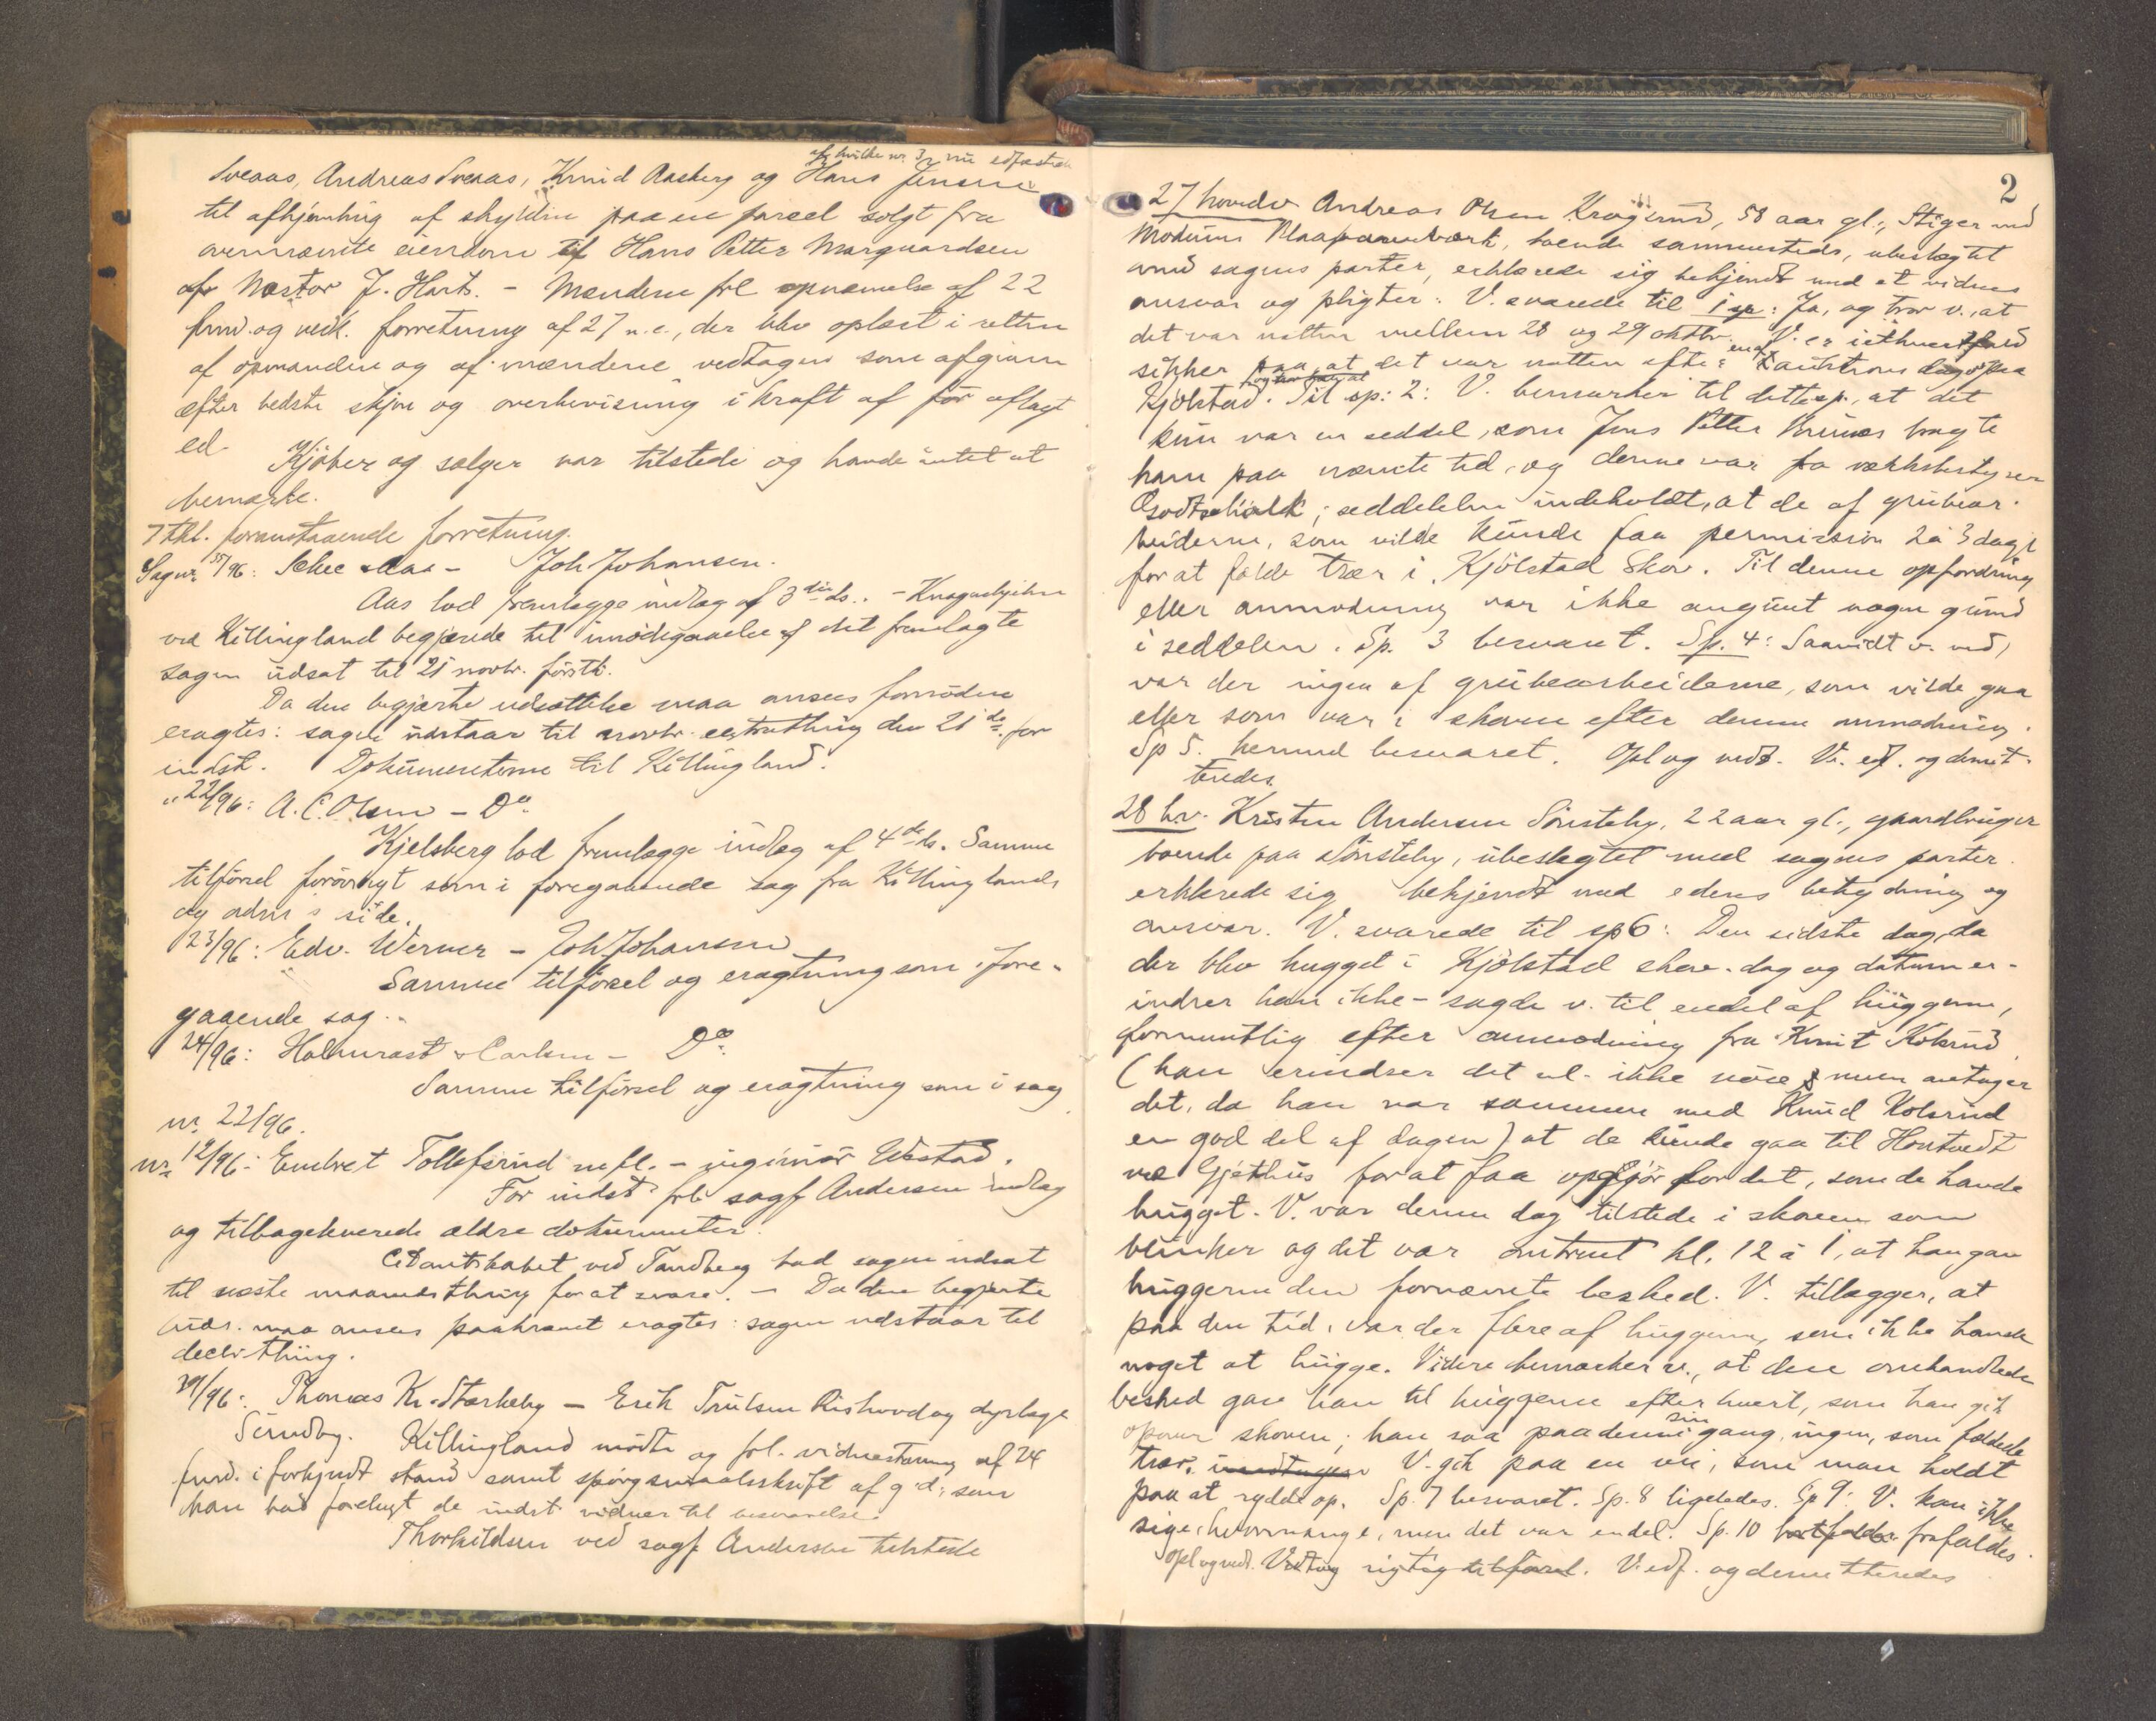 af hvilke nr. 3 nu edfæstede
Sveaas, Andreas Sveaas, Knud Aasberg og Hans Jensen
til afhjemling af skyldin paa en parcel solgt fra
ovennævnte eiendom til Hans Petter Marquardsen
af Nestor J. Harts. - Mændene frl opnævnelse af 22
fmd. og vedk. forretning af 27 n.e., der blev oplæst i retten
af opmanden og af mændene vedtagen som afgiven
efter bedste skjøn og overbevisning i kraft af før aflagt
ed.
Kjøber og sælger var tilstede og havde intet at
bemærke.
7 tkl. foranstaaende forretning.
Sagnr. 35/96: Schee & Aas - Joh Johansen.
Aas lod fremlægge indlæg af 3die ds. -
ved Killingland begjærede til imødegaaelse af det fremlagte
sagen udsat til 21 novbr. førstk.
Da den begjærte udsættelse maa ansees fornøden
eragtes: sagen udstaar til novbr. extrathing den 21de for
indst. Dokumenterne til Killingland.
" 22/96: A. C. Olsen - Do.
Kjelsberg lod fremlægge indlæg af 4de ds. Samme
tilførsel forøvrigt som i foregaaende sag fra Killinglands
og adms side.
23/96: Edv. Werner - Joh Johansen
Samme tilførsel og eragtning som i fore-
gaaende sag.
24/96: Holmvast & Carlsen - Do.
Samme tilførsel og eragtning som i sag
nr. 22/96.
nr. 12/96: Embret Tollefsrud m fl. - ingeniør Westad.
For indst frl. sagf Andersen indlæg
og tilbageleverede ældre dokumenter.
Citantskabet ved Tandberg bad sagen udsat
til næste maanedsthing for at svare. - Da den begjærte
uds. maa ansees paakrævet eragtes: sagen udstaar til
decbr. thing.
29/96: Thomas Kr. Stærkeby - Erik Trulsen Rishovd og dyrlæge
Sundby. Killingland mødte og frl. vidnestævning af 24
fmd. i forkyndt stand samt spørgsmaalsskrift af g d., som
han bad forelagt de indst vidner til besvarelse.
Thorkildsen ved sagf Andersen tilstede
2
27 hovedv. Andreas Olsen Kragsrud, 58 aar gl., Stiger ved
Modums Blaafarveværk, boende sammesteds, ubeslægtet
med sagens parter, erklærede sig bekjendt med et vidnes
ansvar og pligter. V. svarede til 1 sp: Ja, og tror v., at
det var natten mellem 28 og 29 oktbr. V. er iethvertfald
sikker paa, at det var natten efter en auktions dag paa
Kjølstad. Til sp: 2: V. bemærker til dette sp., at det
kun var en seddel, som Jens Petter Brunæs bragte
ham paa nævnte tid, og denne var fra værksbestyrer
Godtschalk; seddelen indeholdt, at de af grubear-
beiderne, som vilde kunde faa permission 2 à 3 dage
for at fælde trær i Kjølstad Skov. Til denne opfordring
eller anmodning var ikke angivet nogen grund
i seddelen. Sp. 3 besvaret. Sp. 4: Saavidt v. ved,
var der ingen af grubearbeiderne, som vilde gaa
eller som var i skoven efter denne anmodning.
Sp 5. herved besvaret. Opl og vedt. V. edf. og demit-
teredes.
28 hv. Kristen Andersen Sønsteby, 22 aar gl., gaardbruger
boende paa Sønsteby, ubeslægtet med sagens parter.
erklærede sig bekjendt med edens betydning og
ansvar. V. svarede til sp 6: Den sidste dag, da
der blev hugget i Kjølstad skov - dag og datum er-
indrer han ikke - sagde v. til endel af huggerne,
formentlig efter anmodning fra Knut Kolsrud
(han erindrer det vel ikke nøie, men antager
det, da han var sammen med Knud Kolsrud
en god del af dagen) at de kunde gaa til Hovtvedt
ved Gjethus for at faa opgjør for det, som de havde
hugget. V. var denne dag tilstede i skoven som
blinker og det var omtrent kl. 12 à 1, at han gav
huggerne den fornævnte besked. V. tillægger, at
paa den tid, var der flere af huggerne, som ikke havde
noget at hugge. Videre bemærker v., at den omhandlede
besked gav han til huggerne efterhvert, som han gik
opover skoven; han saa paa denne sin gang ingen, som fældede
trær. V. gik paa en vei, som man holdt
paa at rydde op. Sp. 7 besvaret. Sp. 8 ligeledes. Sp 9: V. kan ikke
sige, hvormange, men det var endel. Sp. 10 bortfalder frafaldes.
opl og vedt. Vedtog rigtig tilført. V. edf. og demitteredes